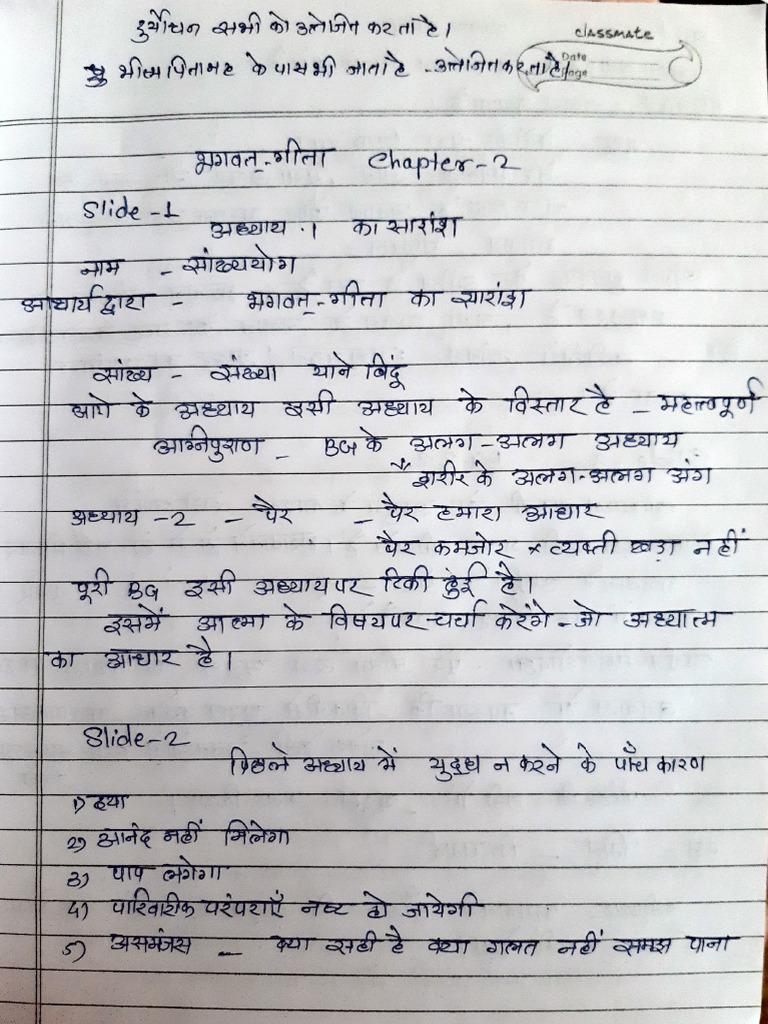 दुर्योधन सभी को उत्तेजित करता है।
classmate
Date
Page
भीष्मपितामह के पास भी जाता है - उत्तेजित करता है।
भगवत्-गीता Chapter-2
Slide-1
अध्याय .1 का सारांश
नाम - सांख्ययोग
आचार्य द्वारा - भगवत्-गीता का सारांश
सांख्य - संख्या याने बिंदू
आगे के अध्याय इसी अध्याय के विस्तार है - महत्वपूर्ण
अग्निपुराण - BG के अलग-अलग अध्याय
शरीर के अलग-अलग अंग
अध्याय -2 - पैर - पैर हमारा आधार
पैर कमजोर x व्यक्ती खड़ा नहीं
पूरी BG इसी अध्याय पर टिकी हुई है।
इसमें आत्मा के विषय पर चर्चा करेंगे - जो अध्यात्म
का आधार है।
Slide-2
पिछले अध्याय में युद्ध न करने के पाँच कारण
1) दया
2) आनंद नहीं मिलेगा
3) पाप लगेगा
4) पारिवारीक परंपराएँ नष्ट हो जायेगी
5) असमंजस - क्या सही है क्या गलत नहीं समझ पाना